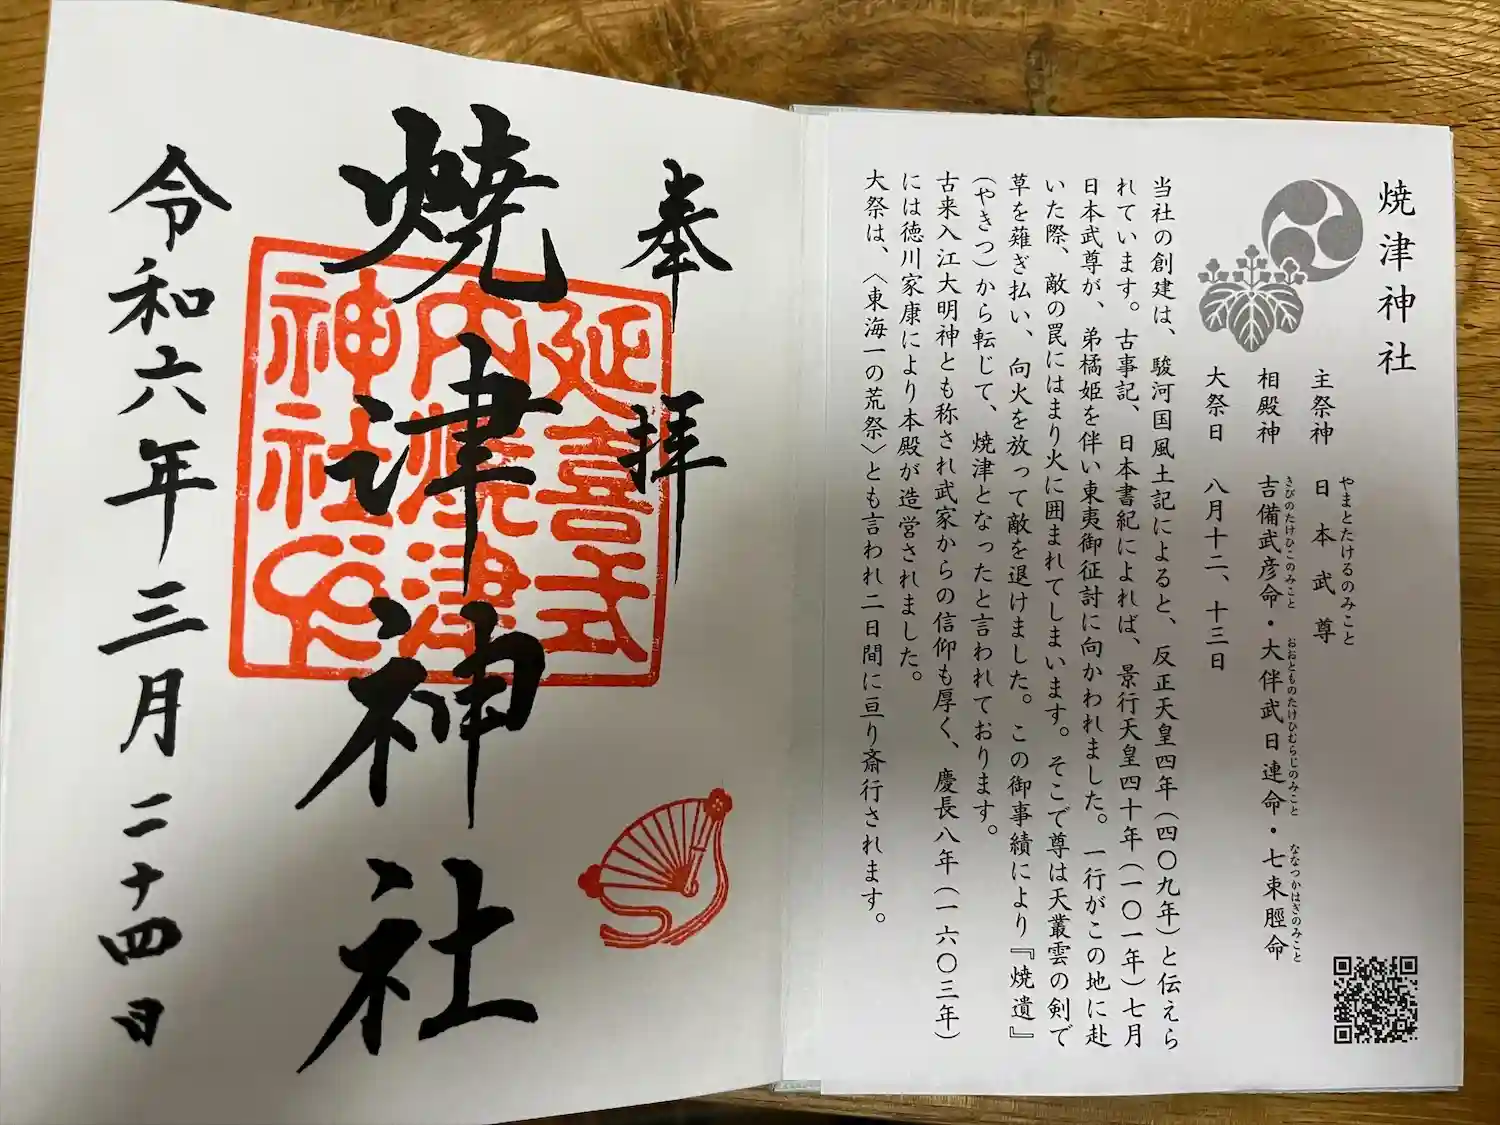 焼津神社
やまとたけるのみこと
主祭神 日本武尊
きびのたけひこのみこと おおとものたけひむらじのみこと ななつかはぎのみこと
相殿神 吉備武彦命・大伴武日連命・七束脛命
大祭日 八月十二、十三日
当社の創建は、駿河国風土記によると、反正天皇四年(四〇九年)と伝えら
れています。古事記、日本書紀によれば、景行天皇四十年(一〇一年)七月
日本武尊が、弟橘姫を伴い東夷御征討に向かわれました。一行がこの地に赴
いた際、敵の罠にはまり火に囲まれてしまいます。そこで尊は天叢雲の剣で
草を薙ぎ払い、向火を放って敵を退けました。この御事績により『焼遺』
(やきつ)から転じて、焼津となったと言われております。
古来入江大明神とも称され武家からの信仰も厚く、慶長八年(一六〇三年)
には徳川家康により本殿が造営されました。
大祭は、〈東海一の荒祭〉とも言われ二日間に亘り斎行されます。
奉拝
延喜式
内焼津
神社印
焼津神社
令和六年三月二十四日